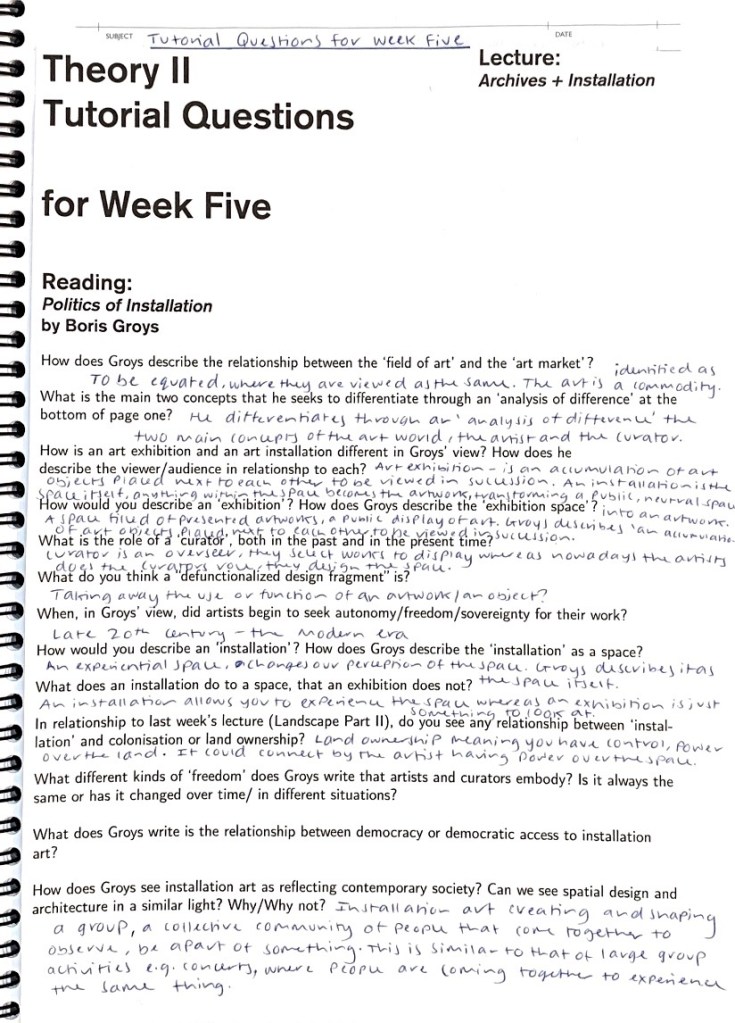 SUBJECT Tutorial Questions for week Five DATE
Theory II
Tutorial Questions
for Week Five
Lecture:
Archives + Installation
Reading:
Politics of Installation
by Boris Groys
How does Groys describe the relationship between the 'field of art' and the 'art market'? identified as
To be equated, where they are viewed as the same. The art is a commodity.
What is the main two concepts that he seeks to differentiate through an 'analysis of difference' at the
bottom of page one? He differentiates through an 'analysis of difference' the
two main concepts of the art world, the artist and the curator.
How is an art exhibition and an art installation different in Groys' view? How does he
describe the viewer/audience in relationshp to each? Art exhibition - is an accumulation of art
objects placed next to each other to be viewed in sucession. An installation is the
space itself, anything within the space becomes the artwork, transforming a public, neutral space
How would you describe an 'exhibition'? How does Groys describe the 'exhibition space'? into an artwork.
A space filled of presented artworks, a public display of art. Groys describes 'an accumulation
of art objects placed next to each other to be viewed in succession.
What is the role of a 'curator', both in the past and in the present time?
curator is an overseer, they select works to display whereas nowadays the artists
does the curators role, they design the space.
What do you think a "defunctionalized design fragment" is?
Taking away the use or function of an artwork/an object?
When, in Groys' view, did artists begin to seek autonomy/freedom/sovereignty for their work?
Late 20th century - the modern era
How would you describe an 'installation'? How does Groys describe the 'installation' as a space?
An experiential space, changes our perception of the space. Groys describes it as
What does an installation do to a space, that an exhibition does not? the space itself.
An installation allows you to experience the space whereas an exhibition is just
something to look at.
In relationship to last week's lecture (Landscape Part II), do you see any relationship between 'instal-
lation' and colonisation or land ownership? Land ownership meaning you have control, power
over the land. It could connect by the artist having power over the space.
What different kinds of 'freedom' does Groys write that artists and curators embody? Is it always the
same or has it changed over time/ in different situations?
What does Groys write is the relationship between democracy or democratic access to installation
art?
How does Groys see installation art as reflecting contemporary society? Can we see spatial design and
architecture in a similar light? Why/Why not? Installation art creating and shaping
a group, a collective community of people that come together to
observe, be apart of something. This is similar to that of large group
activities e.g. concerts, where people are coming together to experience
the same thing.